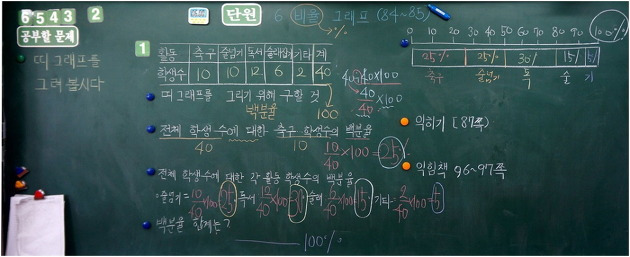 6 5 4 3 2
공부할 문제
띠 그래프를
그려 봅시다
단원 6 비율 그래프 (84~85)
%
1
활동 축구 줄넘기 독서 술래잡기 기타 계
학생수 10 10 12 6 2 40
띠 그래프를 그리기 위해 구할 것
백분율 100
40 × 100
10/40 × 100
전체 학생수에 대한 축구 학생수의 백분율
40 10 10/40 × 100 = 25%
전체 학생수에 대한 각 활동 학생수의 백분율
줄넘기 = 10/40 × 100 독서 12/40 × 100 술래 6/40 × 100 = 15 기타 = 2/40 × 100 = 5
백분율 합계는?
100%
0 10 20 30 40 50 60 70 80 90 100%
25% 25% 30% 15% 5%
축구 줄넘기 독 술 기
익히기 [87쪽]
익힘책 96~97쪽